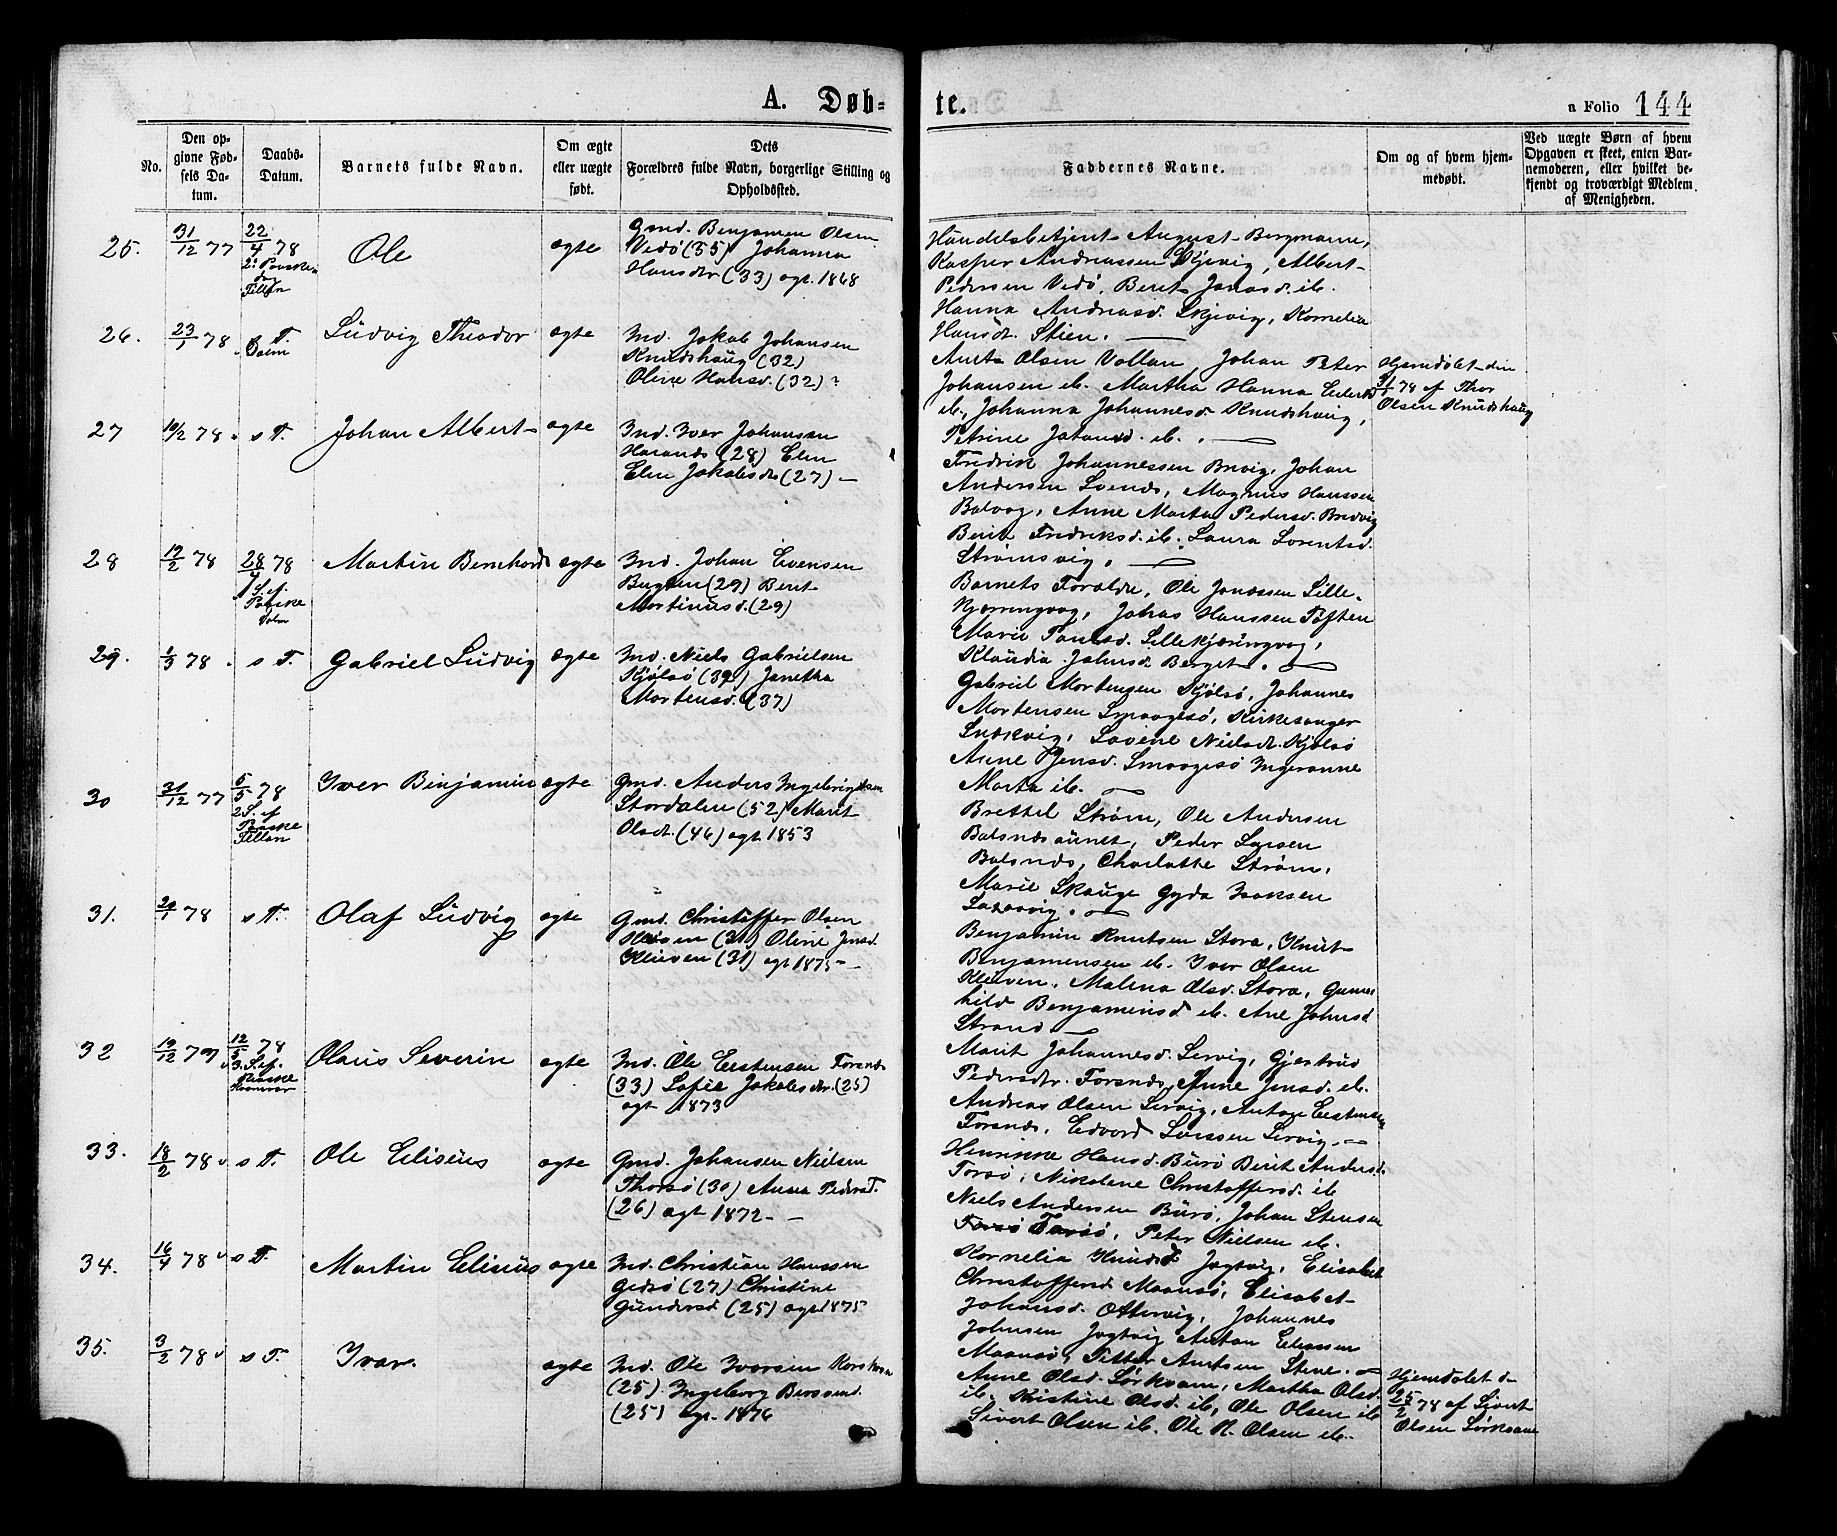 A. Døb-
te.
a Folio 144
No.
Den op-
givne Fød-
sels Da-
tum.
Daabs-
Datum.
Barnets fulde Navn.
Om ægte
eller uægte
født.
Dets
Forældres fulde Navn, borgerlige Stilling og
Opholdssted.
Faddernes Navne.
Om og af hvem hjem-
medøbt.
Ved uægte Børn af hvem
Opgaven er skeet, enten Bar-
nemoderen, eller hvilket be-
kjendt og troværdigt Medlem
af Menigheden.
25.
31/12 77
22/4 78
2: Paaske-
d.
Tillen
Ole
ægte
Gmd. Benjamin Olsen
Vedø (35) Johanna
Hansdtr (33) agt. 1868
Handelsbetjent August Bergmann,
Kasper Andreassen Skjevig, Albert
Pedersen Vedø, Beret Jonasd. ib.
Hanna Andreasd. Skjevig, Kornelia
Hansdt. Stien.
26.
23/1 78
s. T.
Ludvig Theodor
ægte
Ind. Jakob Johansen
Knudshaug (32)
Oline Hansd. (32) ?
Arnt Olsen Vollan, Johan Peter
Johansen ib. Martha Hanna
ib., Johanna Johannesd. Knudshaug,
Petrine Johansd. ib.
Hjemdøbt den
31/1 78 af Thor
Olsen Knudshaug
27
10/2 78
s T.
Johan Albert
ægte
Ind. Iver Johansen
(28) Elen
Elen Jakobsdtr (27) —
Fredrik Johannessen Brvig, Johan
Andersen Svends, Magnus Hanssen
Balvog, Anne Marta Pedersd. Bredvig
Berit Fredriksd. ib. Laura Lorentsd.
Strømsvig.
28
12/2 78
28/4 78
1 S. ef.
Paaske
Martin Bernhard
ægte
Ind. Johan Evensen
Bugten (29) Berit
Mortinusd. (29)
Barnets Foraldre, Ole Jonassen Lille-
kjørringvog, Johas Hanssen Toften
Marie Paulsd. Lillekjøringvog,
Klaudia Johnsd. Berget.
29.
1/3 78
s T.
Gabriel Ludvig
ægte
Ind. Niels Gabrielsen
Kjølsø (39) Janetha
Mortensd. (37)
Gabriel Mortensen Kjølsø, Johannes
Mortensen Smaagesø, Kirkesanger
Lovene Nielsdt. Kjølsø
Anne Jensd. Smaagesø Ingeranne
Marta ib.
30
31/12 77
5/5 78
2 S. ef
Paaske
Tillen
Iver Binjamin
ægte
Gmd. Anders Ingebrigtsen
Stordalen (52) Marit
Olsdt. (46) agt 1853
Brettel Strøm, Ole Andersen
Balsnæsaunet, Peder Larsen
Balsnæs, Charlotte Strøm,
Marie Skauge Gyda Isaksen
Laksavig.
31.
29/1 78
s T.
Olaf Ludvig
ægte
Gmd. Christoffer Olsen
(31) Oline Jensd.
Kleiven (31) agt 1875 —
Benjamin Knutsen Stora, Knut
Benjamensen ib. Iver Olsen
Kleiven, Malena Olsd. Stora, Gunn-
hild Benjaminsd ib. Ane Johnsd
Strand
32
19/12 77
12/5 78
3. S. ef.
Paaske
Olaus Severin
ægte
Ind. Ole Eestensen Forsnæs
(33) Sofie Jakobsdtr. (25)
agt 1873
Marit Johannesd. Servig, Gjertrud
Pedersdtr. Forsnæs, Anne Jensd. ib.
Andreas Olsen Servig, Antoge Eestensen
Forsnæs, Edvard Larssen Servig.
33.
18/2 78
s T.
Ole Elisius
ægte
Gmd. Johansen Nielsen
Thorsø (30) Anna Pedersd.
(26) agt 1872 — —
Henrikke Hansd. Burø Berit Anders d.
Torsø, Nikoline Christoffersd. ib
Niels Andersen Burø, Johan Stensen
Torsø, Peter Nielsen ib.
34.
16/4 78
s T.
Martin Elisius
ægte
Ind. Christian Hanssen
Gidsø (27) Christine
Gundersd (25) agt 1875
Kornelia Knudsd. Jøgtvig, Elisabet
Christoffersd Maansø, Elisabet
Johansd. Ottervig, Johannes
Johnsen Jøgtvig Anton Eliassen
Maansø, Petter Arntsen Stene.
35.
3/2 78
s T.
Ivar
ægte
Ind. Ole Iversen
(25) Ingeborg
(25) agt. 1876
Anne Olsd. Sørkvam, Martha Olsd.
ib. Kristine Olsd. ib, Ole Olsen ib
Sivert Olsen ib. Ole R. Olsen ib.
Hjemdøbt d.
25/2 78 af Sivert
Olsen Sørkvam